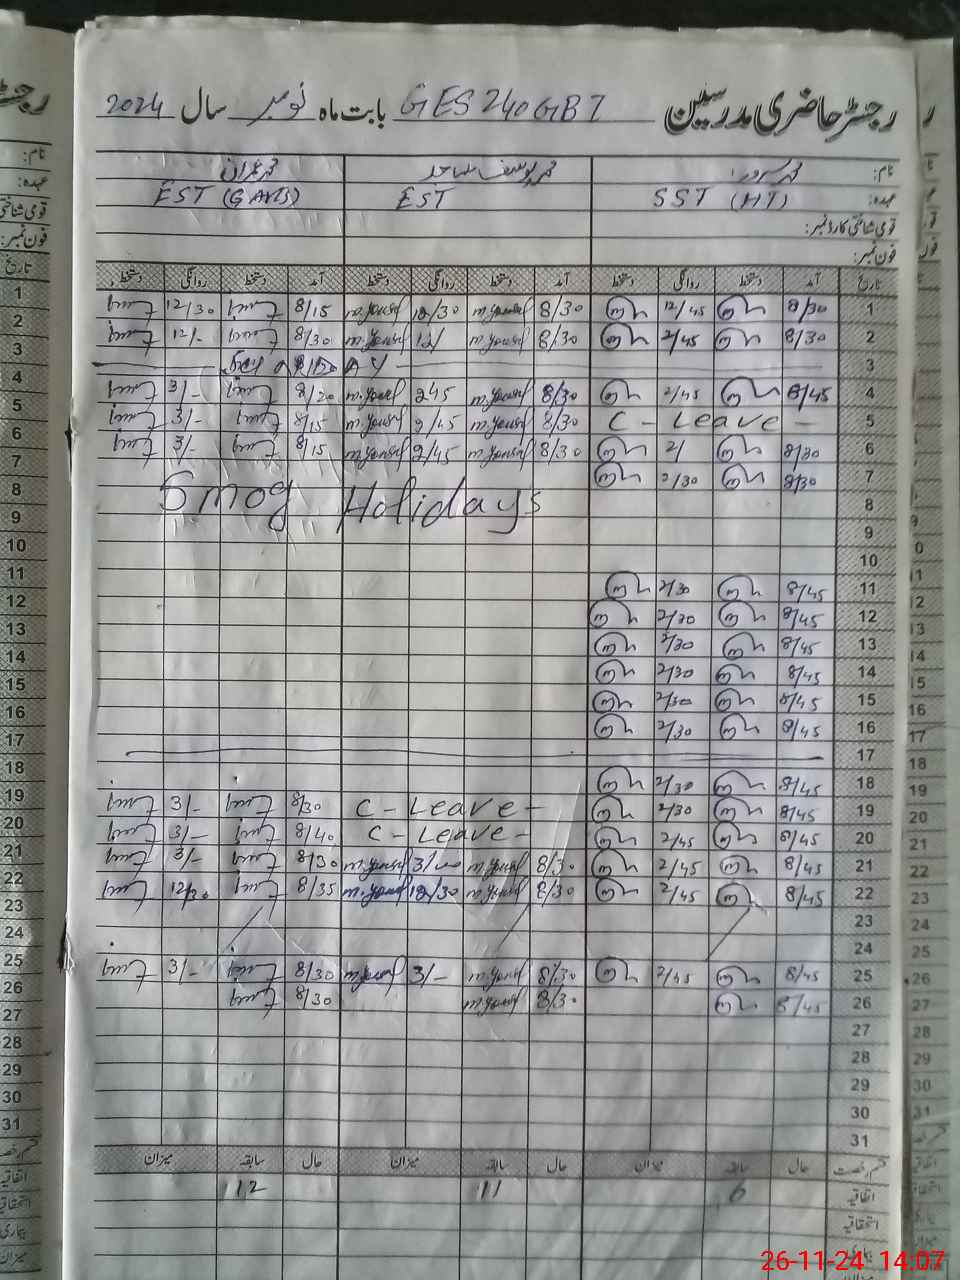 رجسٹر حاضری مدرسین GES 240 GB T بابت ماہ نومبر سال 2024
نام: محمد سرور محمد یوسف ساجد محمد عمران
عہدہ: SST (HT) EST EST
قومی شناختی کارڈ نمبر:
فون نمبر:
تاریخ آمد دستخط روانگی دستخط آمد دستخط روانگی دستخط آمد دستخط روانگی دستخط
1 8/30 12/45 8/30 m.yousaf 12/30 m.yousaf 8/15 12/30
2 8/30 2/45 8/30 m.yousaf 12/ m.yousaf 8/30 12/-
3
4 8/45 2/45 8/30 m.yousaf 2/45 m.yousaf 8/20 3/-
5 C - Leave - 8/30 m.yousaf 2/45 m.yousaf 8/15 3/-
6 8/30 2/ 8/30 m.yousaf 2/45 m.yousaf 8/15 3/-
7 8/30 2/30
Smog Holidays
8
9
10
11 8/45 2/30
12 8/45 2/30
13 8/45 2/30
14 8/45 2/30
15 8/45 2/30
16 8/45 2/30
17
18 8/45 2/30
19 8/45 2/30 C - Leave - 8/30 3/-
20 8/45 2/45 C - Leave - 8/40 3/-
21 8/45 2/45 8/30 m.yousaf 3/- m.yousaf 8/30 3/-
22 8/45 2/45 8/30 m.yousaf 12/30 m.yousaf 8/35 12/30
23
24
25 8/45 2/45 8/30 m.yousaf 3/- m.yousaf 8/30 3/-
26 8/45 8/30 m.yousaf 8/30
27
28
29
30
31
قسم رخصت حال سابقہ میزان حال سابقہ میزان حال سابقہ میزان
اتفاقیہ 6 11 12
استحقاقیہ
بیماری
میزان
26-11-24 14:07